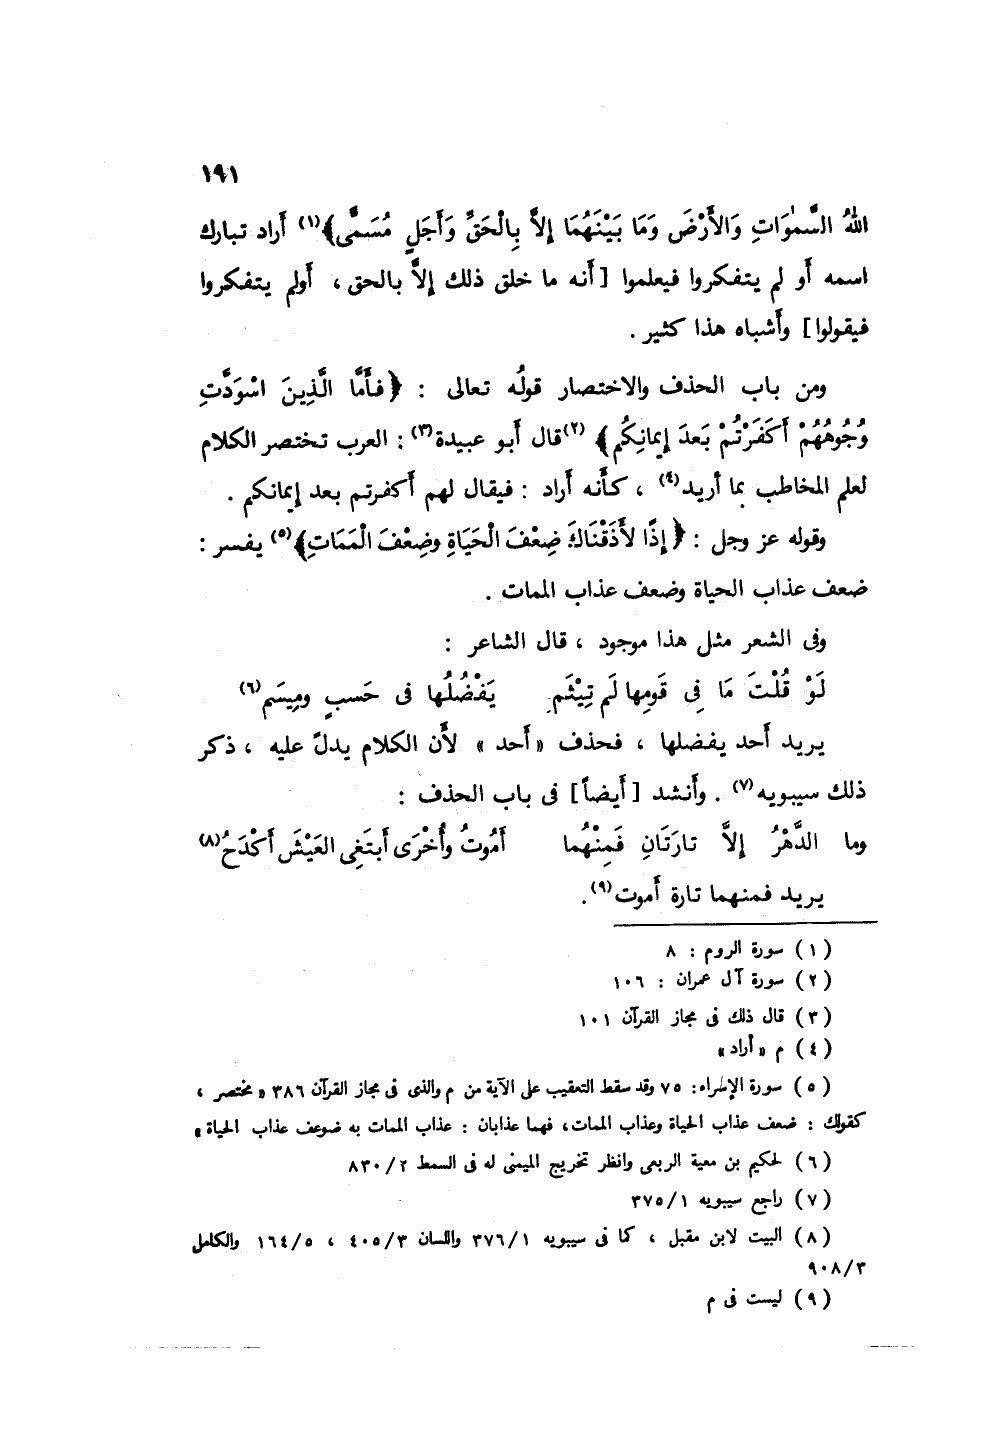 ١٩١
اللهُ السَّمٰوَاتِ وَالأَرْضَ وَمَا بَيْنَهُمَا إِلاَّ بِالْحَقِّ وَأَجَلٍ مُسَمًّى﴾(١) أَراد تبارك
اسمه أَو لم يتفكروا فيعلموا [ أَنه ما خلق ذلك إِلاَّ بالحق ، أَولم يتفكروا
فيقولوا ] وأَشباه هذا كثير .
ومن باب الحذف والاختصار قولُه تعالى : ﴿ فأَمَّا الَّذِينَ اسْوَدَّتِ
وُجُوهُهُمْ أَكَفَرْتُمْ بَعدَ إِيمانِكُم﴾ (٢)قال أَبو عبيدة(٣) : العرب تختصر الكلام
لعلم المخاطب بما أريد(٤) ، كأَنه أَراد : فيقال لهم أكفرتم بعد إيمانكم .
وقوله عز وجل : ﴿ إِذًا لأَذَقْنَاكَ ضِعْفَ الْحَيَاةِ وضِعْفَ الْمَمَاتِ﴾(٥) يفسر :
ضعف عذاب الحياة وضعف عذاب الممات .
وفى الشعر مثل هذا موجود ، قال الشاعر :
لَوْ قُلْتَ مَا فِى قَومِها لَم تِيْثَمِ يَفْضُلُها فى حَسبٍ ومِيسَم(٦)
يريد أَحد يفضلها ، فحذف « أَحد » لأَن الكلام يدلّ عليه ، ذكر
ذلك سيبويه(٧) . وأَنشد [ أَيضاً ] فى باب الحذف :
وما الدَّهْرُ إِلاَّ تارَتَانِ فَمِنْهُما أَمُوتُ وأُخْرَى أَبتَغِى العَيْشَ أَكْدَحُ(٨)
يريد فمنهما تارة أَموت(٩).
( ١ ) سورة الروم : ٨
( ٢ ) سورة آل عمران : ١٠٦
( ٣ ) قال ذلك فى مجاز القرآن ١٠١
( ٤ ) م « أراد »
( ٥ ) سورة الإسراء: ٧٥ وقد سقط التعقيب على الآية من م والذى فى مجاز القرآن ٣٨٦ « مختصر ،
كقولك : ضعف عذاب الحياة وعذاب الممات، فهما عذابان : عذاب الممات به ضوعف عذاب الحياة »
( ٦ ) لحكيم بن معية الربعى وانظر تخريج الميمنى له فى السمط ٢/ ٨٣٠
( ٧ ) راجع سيبويه ١/ ٣٧٥
( ٨ ) البيت لابن مقبل ، كما فى سيبويه ١/ ٣٧٦ واللسان ٣/ ٤٠٥ ، ٥/ ١٦٤ والكامل
٣/ ٩٠٨
( ٩ ) ليست فى م